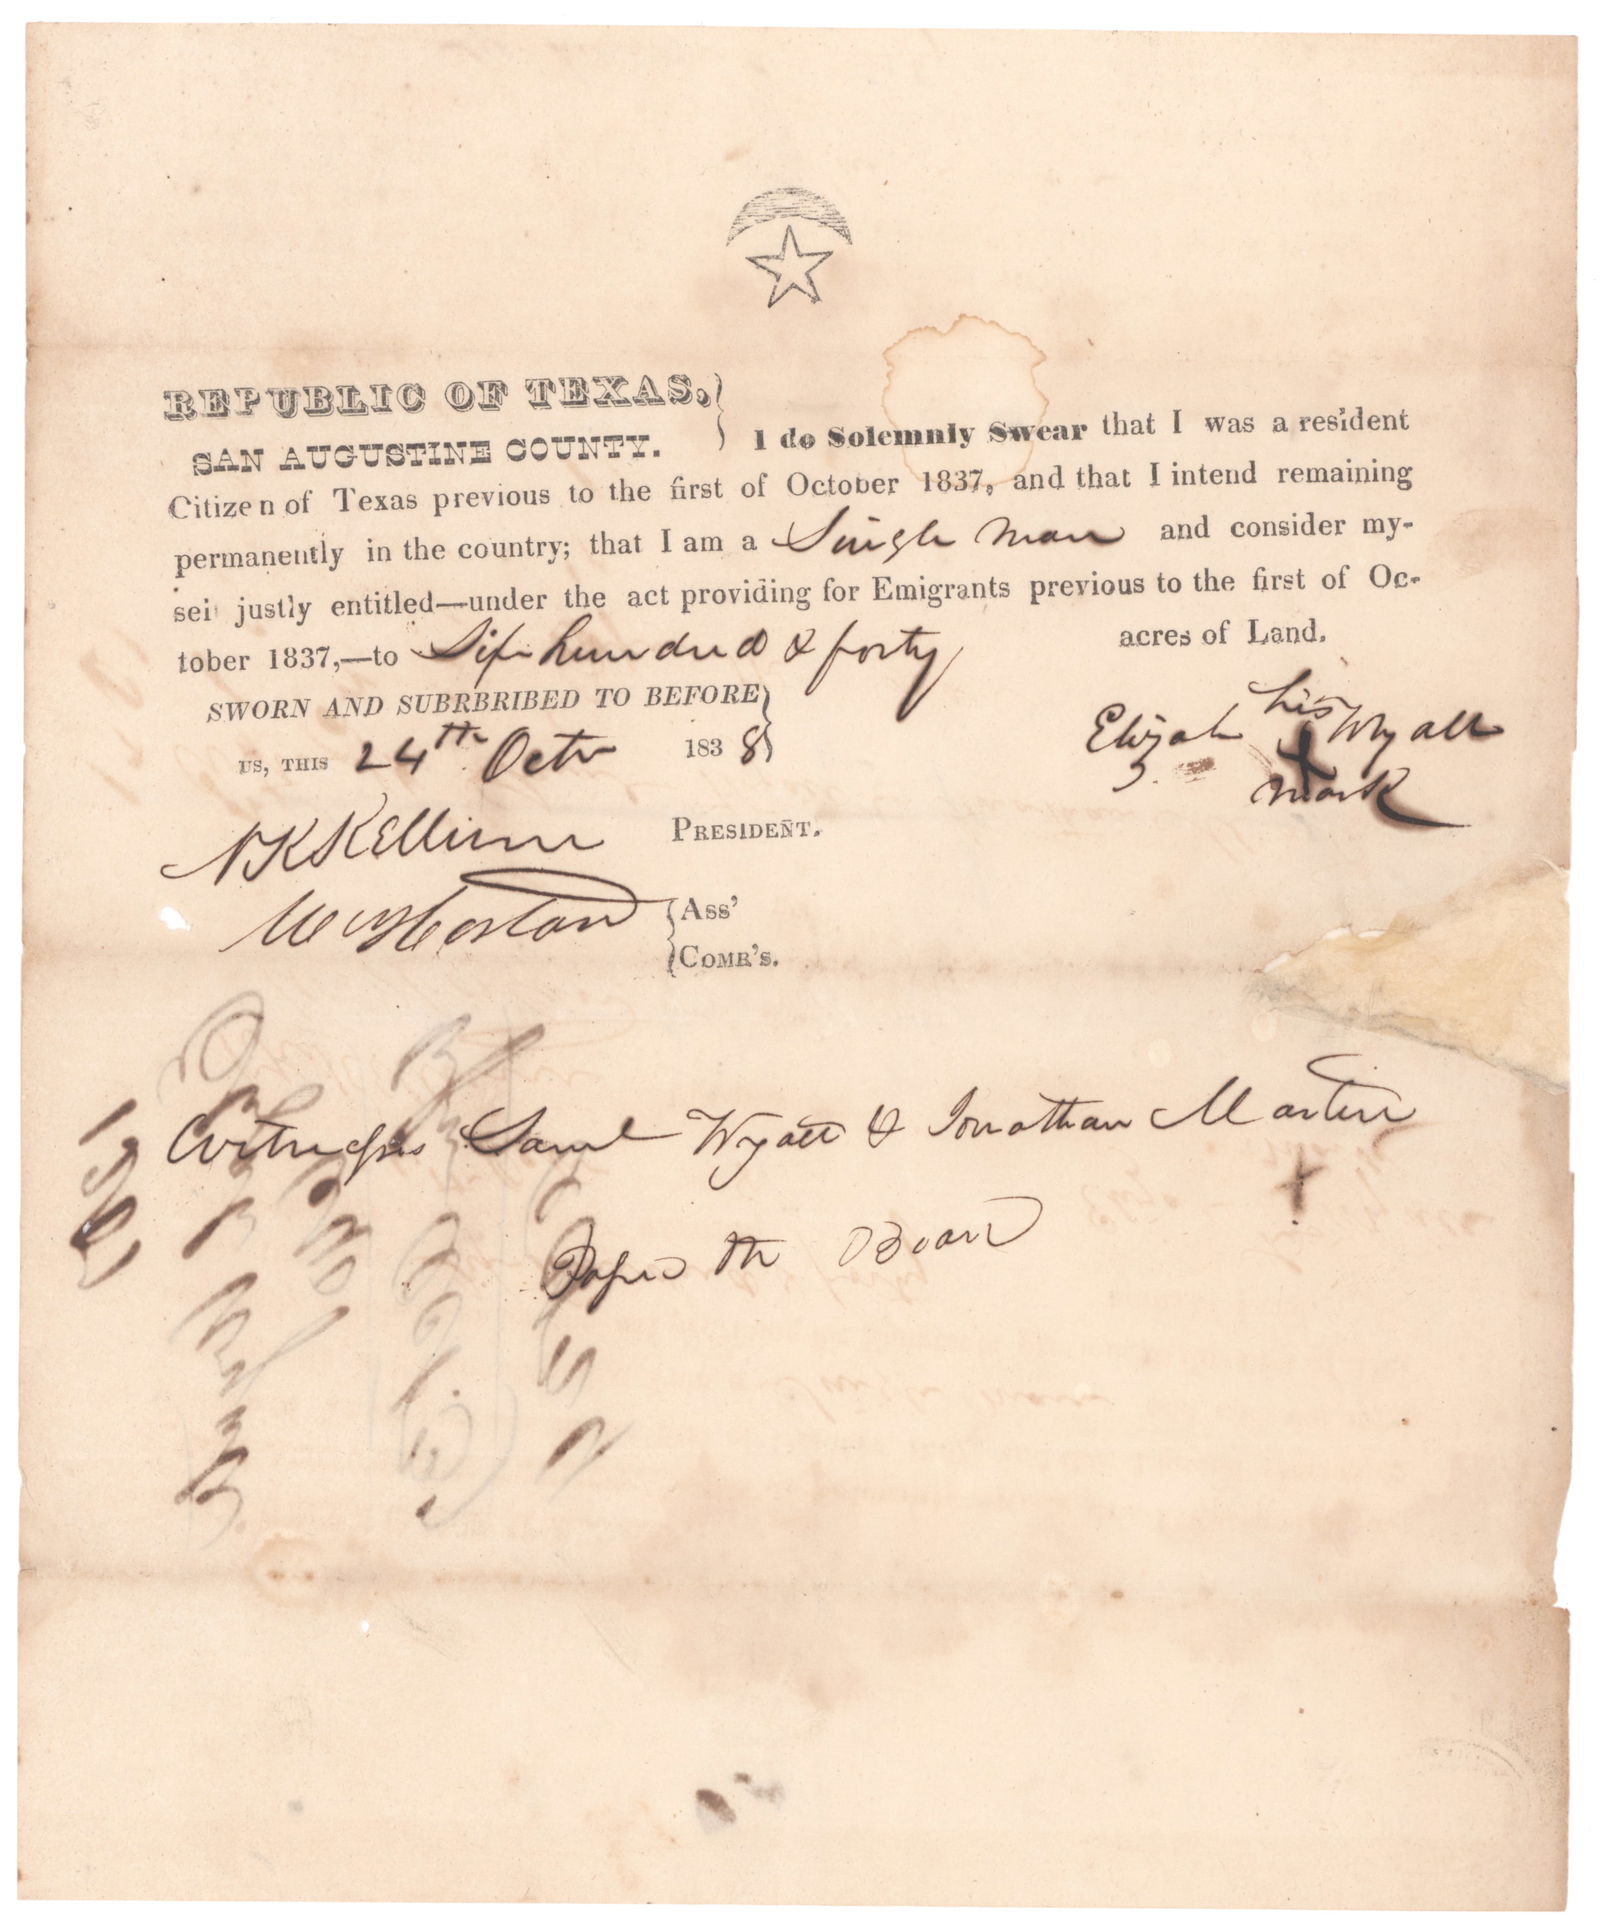 REPUBLIC OF TEXAS,
SAN AUGUSTINE COUNTY.
I do Solemnly Swear that I was a resident
Citizen of Texas previous to the first of October 1837, and that I intend remaining
permanently in the country; that I am a Single man and consider my-
sel justly entitled—under the act providing for Emigrants previous to the first of Oc-
tober 1837,—to Six hundred & forty acres of Land.
SWORN AND SUBRBRIBED TO BEFORE
US, THIS 24th Octr 1838
his
Elijah X Wyatt
mark
N K Kellum PRESIDENT.
Horton
ASS'
COMR'S.
Witnesses Saml Wyatt & Jonathan Martin
the Board